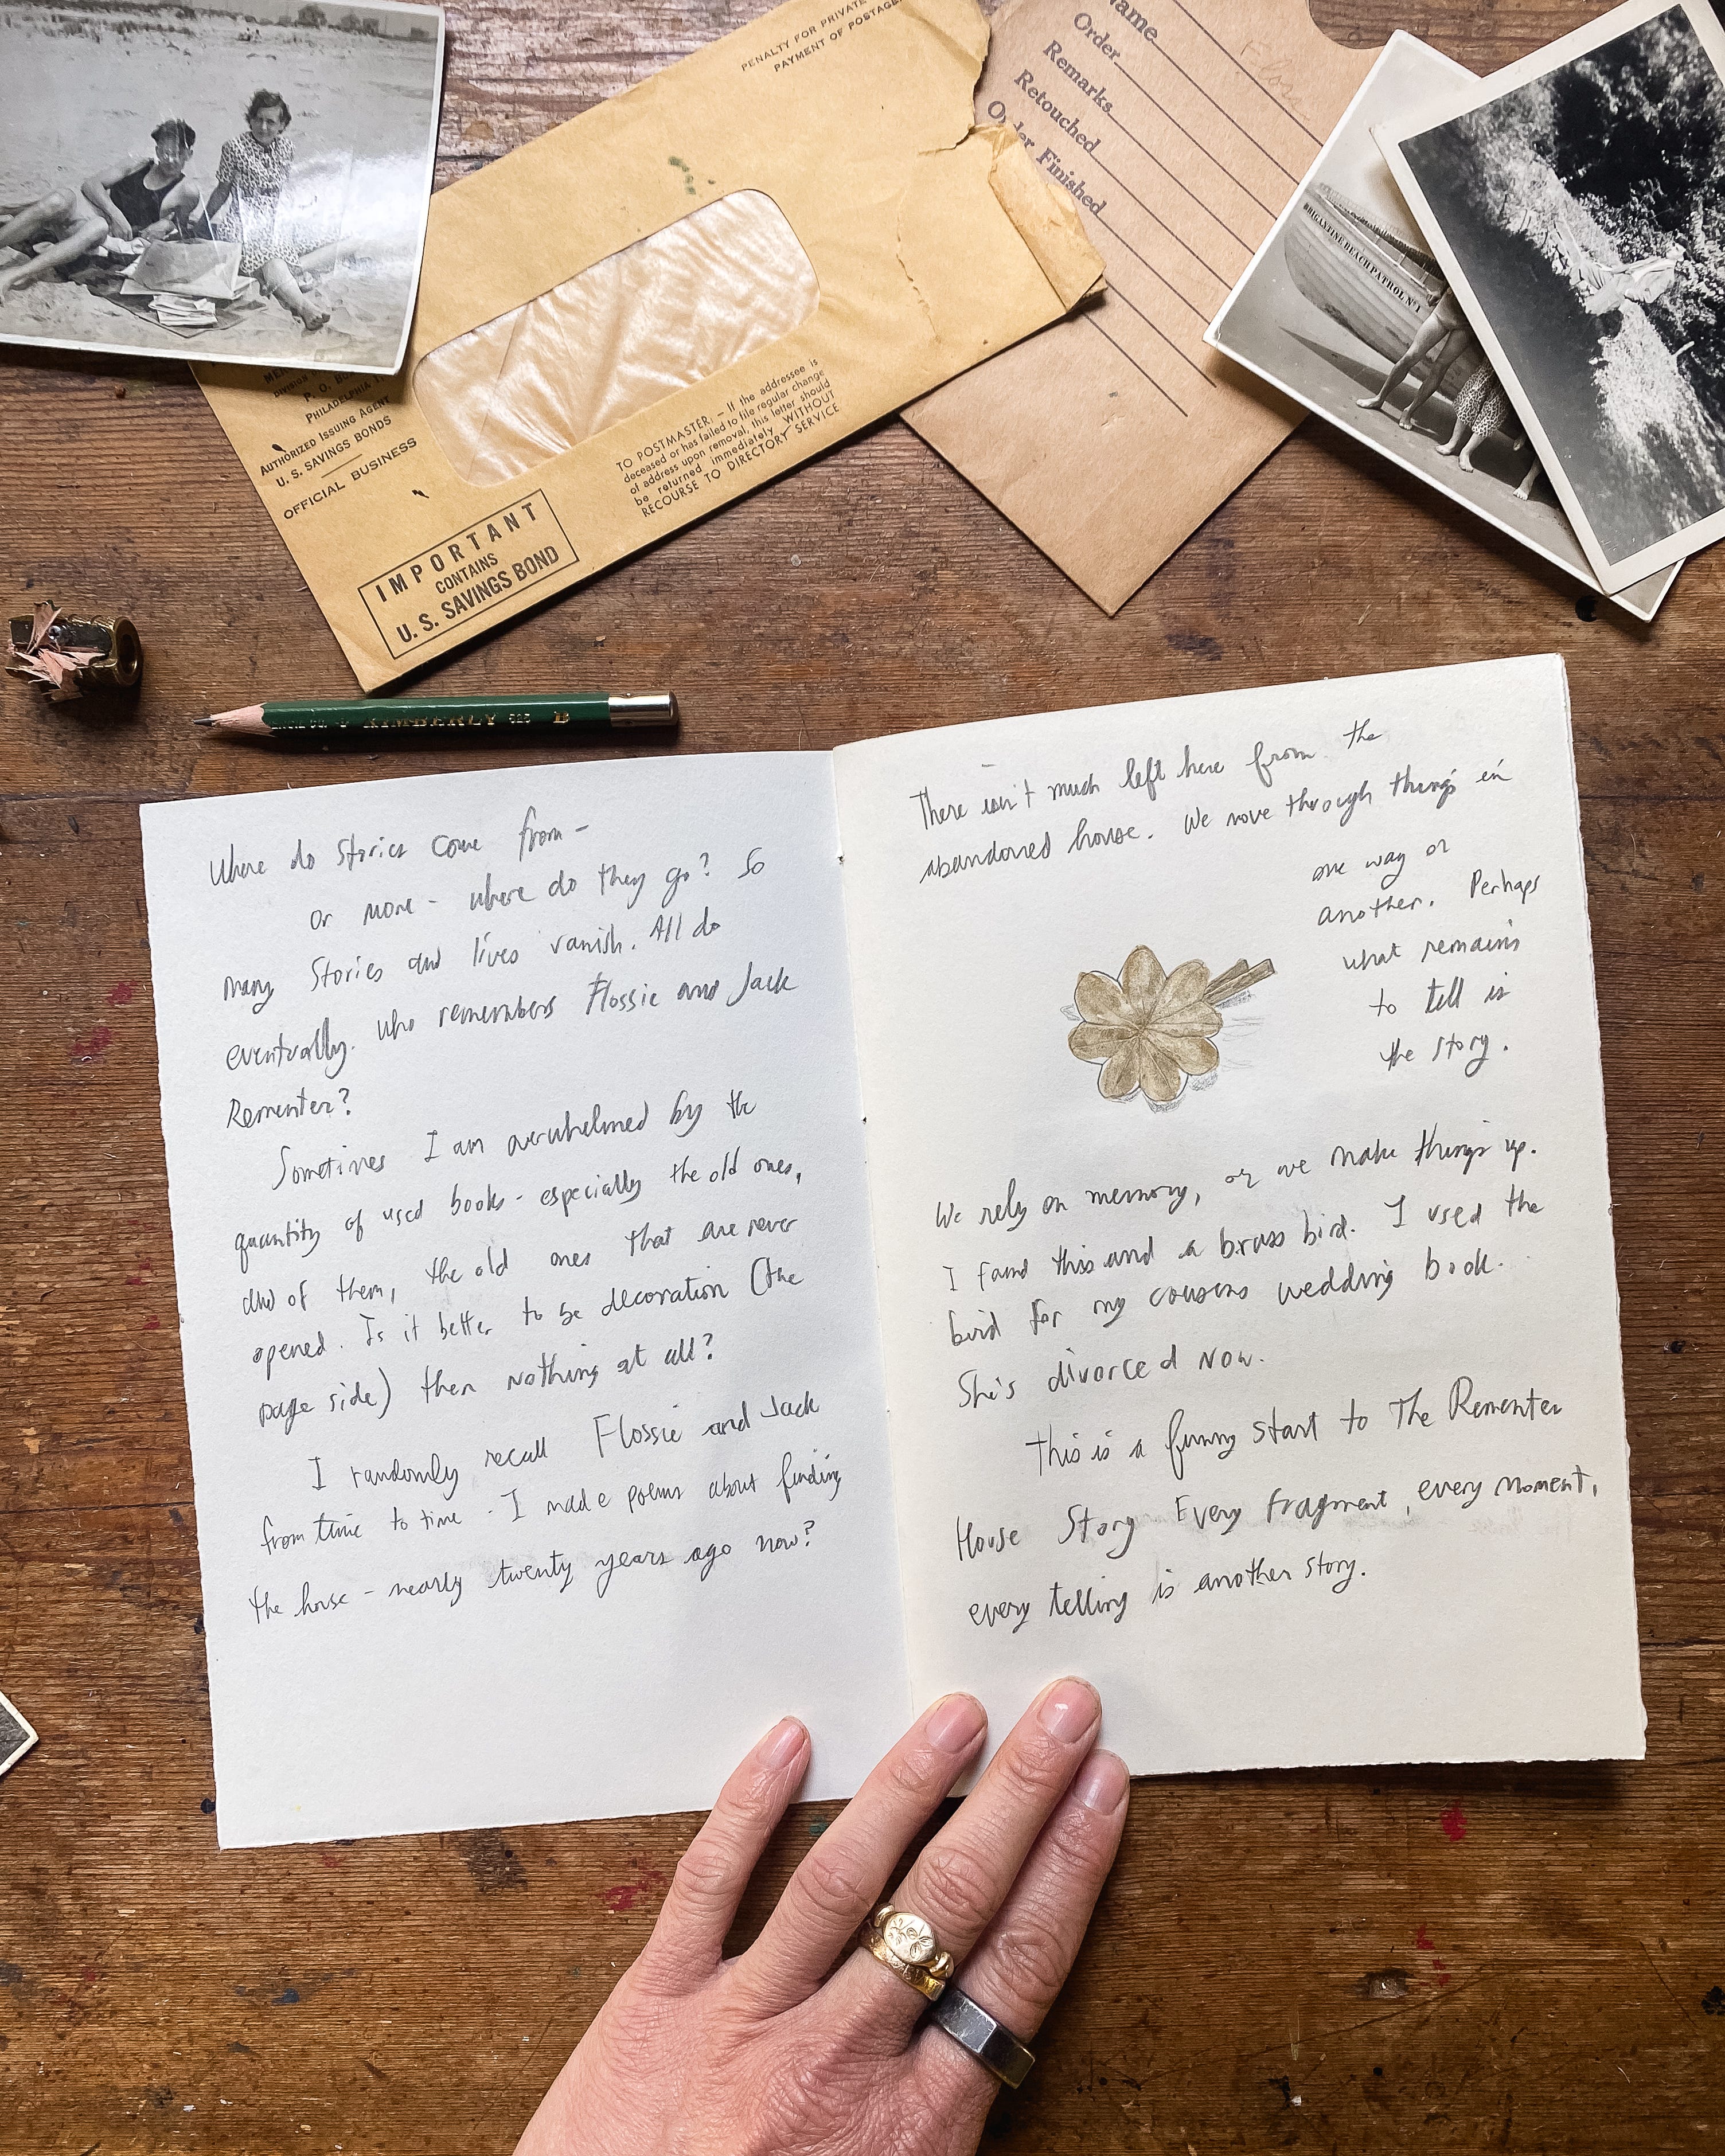 PENALTY FOR PRIVATE
PAYMENT OF POSTAGE
Name
Order
Remarks
Retouched
Order Finished
BRIGANTINE BEACH PATROL Nº1
P. O.
PHILADELPHIA
AUTHORIZED ISSUING AGENT
U. S. SAVINGS BONDS
OFFICIAL BUSINESS
TO POSTMASTER. — If the addressee is
deceased or has failed to file regular change
of address upon removal, this letter should
be returned immediately WITHOUT
RECOURSE TO DIRECTORY SERVICE
IMPORTANT
CONTAINS
U. S. SAVINGS BOND
KIMBERLY 525 B
Where do stories come from -
or more - where do they go? So
many stories and lives vanish. All do
eventually. who remembers Flossie and Jack
Rementer?
Sometimes I am overwhelmed by the
quantity of used books - especially the old ones,
all of them, the old ones that are never
opened. Is it better to be decoration (the
page side) then nothing at all?
I randomly recall Flossie and Jack
from time to time - I made poems about finding
the house - nearly twenty years ago now?
There isn't much left here from the
abandoned house. We move through things in
one way or
another. Perhaps
what remains
to tell is
the story.
We rely on memory, or we make things up.
I found this and a brass bird. I used the
bird for my cousins wedding book.
She's divorced now.
This is a funny start to The Rementer
House Story Every fragment, every moment,
every telling is another story.